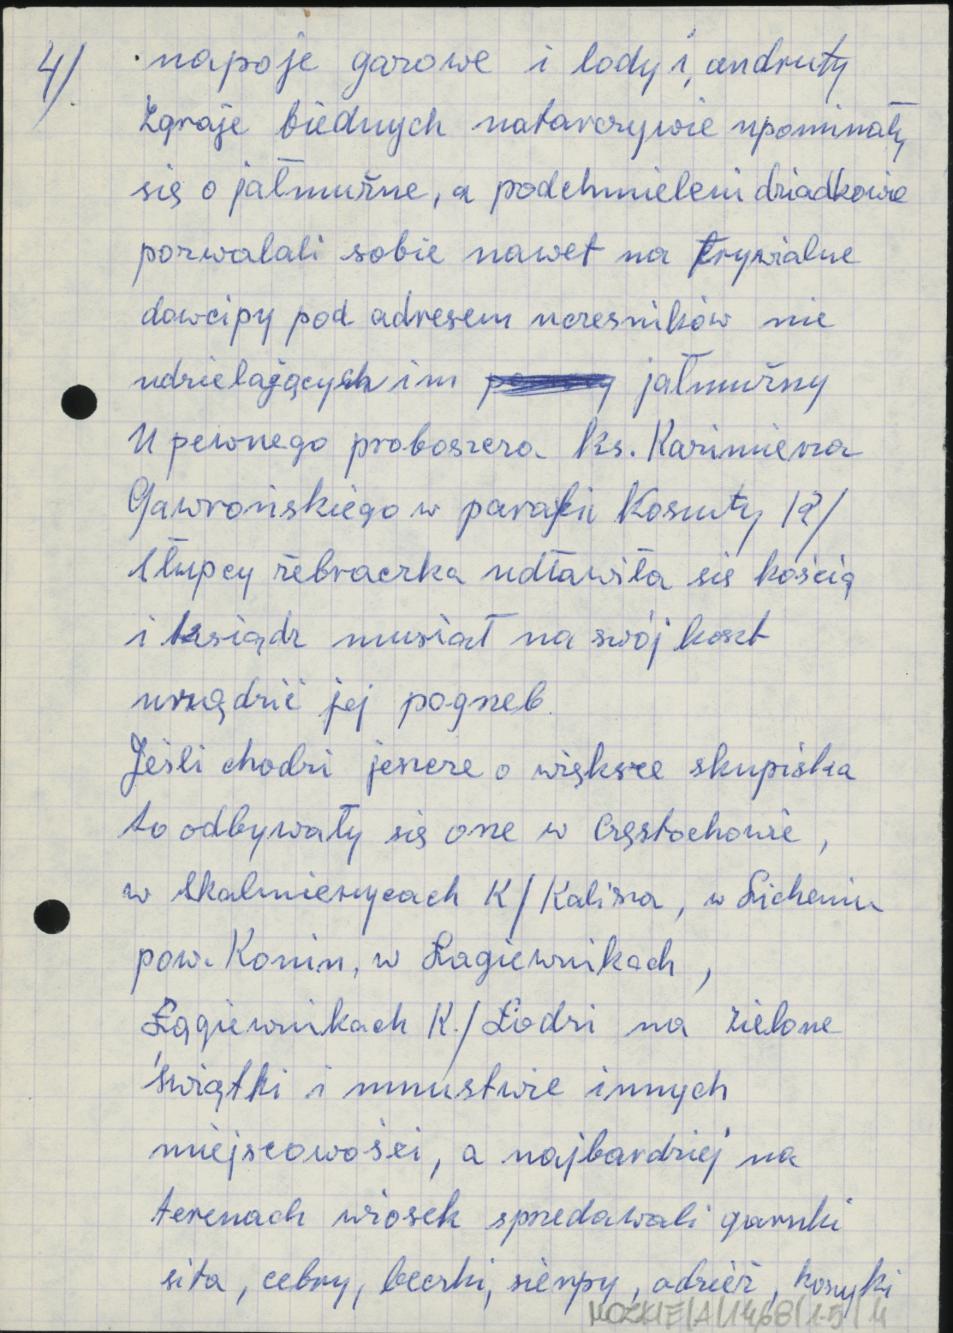 4/ napoje gazowe i lody i andruty
Zgraje biednych natarczywie upominały
się o jałmużne, a podchmieleni dziadkowie
pozwalali sobie nawet na trywialne
dowcipy pod adresem uczesników nie
udzielających im jałmużny
U pewnego proboszcza ks. Kazimierza
Gawrońskiego w parafii Kosuty /?/
Słupcy żebraczka udławiła się kością
i ksiądz musiał na swój koszt
urządzić jej pogrzeb.
Jeśli chodzi jeszcze o większe skupiska
to odbywały się one w Częstochowie,
w Skalmierzycach K/Kalisza, w Licheniu
pow. Konin, w Łagiewnikach,
Łągiewnikach K./Łodzi na zielone
świątki i mnustwie innych
miejscowości, a najbardziej na
terenach wiosek sprzedawali garnki
sita, cebry, beczki, sierpy, odzież, koszyki